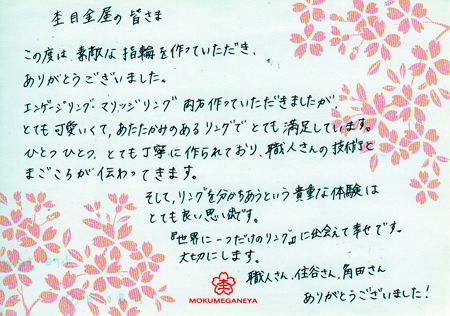 杢目金屋の皆さま
この度は、素敵な指輪を作っていただき、
ありがとうございました。
エンゲージリング・マリッジリング両方作っていただきましたが、
とても可愛いくて、あたたかみのあるリングでとても満足しています。
ひとつひとつ、とても丁寧に作られており、職人さんの技術と
まごころが伝わってきます。
そして、リングを分かちあうという貴重な体験は
とても良い思い出です。
『世界に一つだけのリング』に出会えて幸せです。
大切にします。
職人さん、住谷さん、角田さん
ありがとうございました!
MOKUMEGANEYA